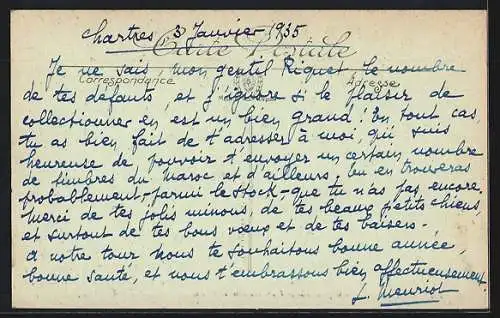 Chartres 3 Janvier 1935
Carte Postale
Je ne sais, mon gentil Riquet le nombre
Correspondance Adresse
de tes defauts, et j'ignore si le plaisir de
collectionner en est un bien grand! En tout cas,
tu as bien fait de t'adresser à moi, qui suis
heureuse de pouvoir t'envoyer un certain nombre
de timbres du Maroc et d'ailleurs, tu en trouveras
probablement, parmi le stock, que tu n'as pas encore.
Merci de tes jolis minous, de tes beaux petits chiens,
et surtout de tes bons voeux et de tes baisers.
A notre tour nous te souhaitons bonne année,
bonne santé, et nous t'embrassons bien affectueusement
L. Meuriot